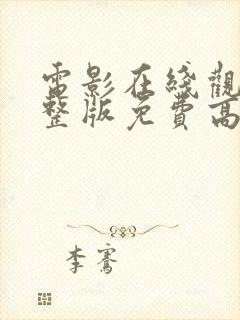 電影在綫觀
整版免費高
李騫